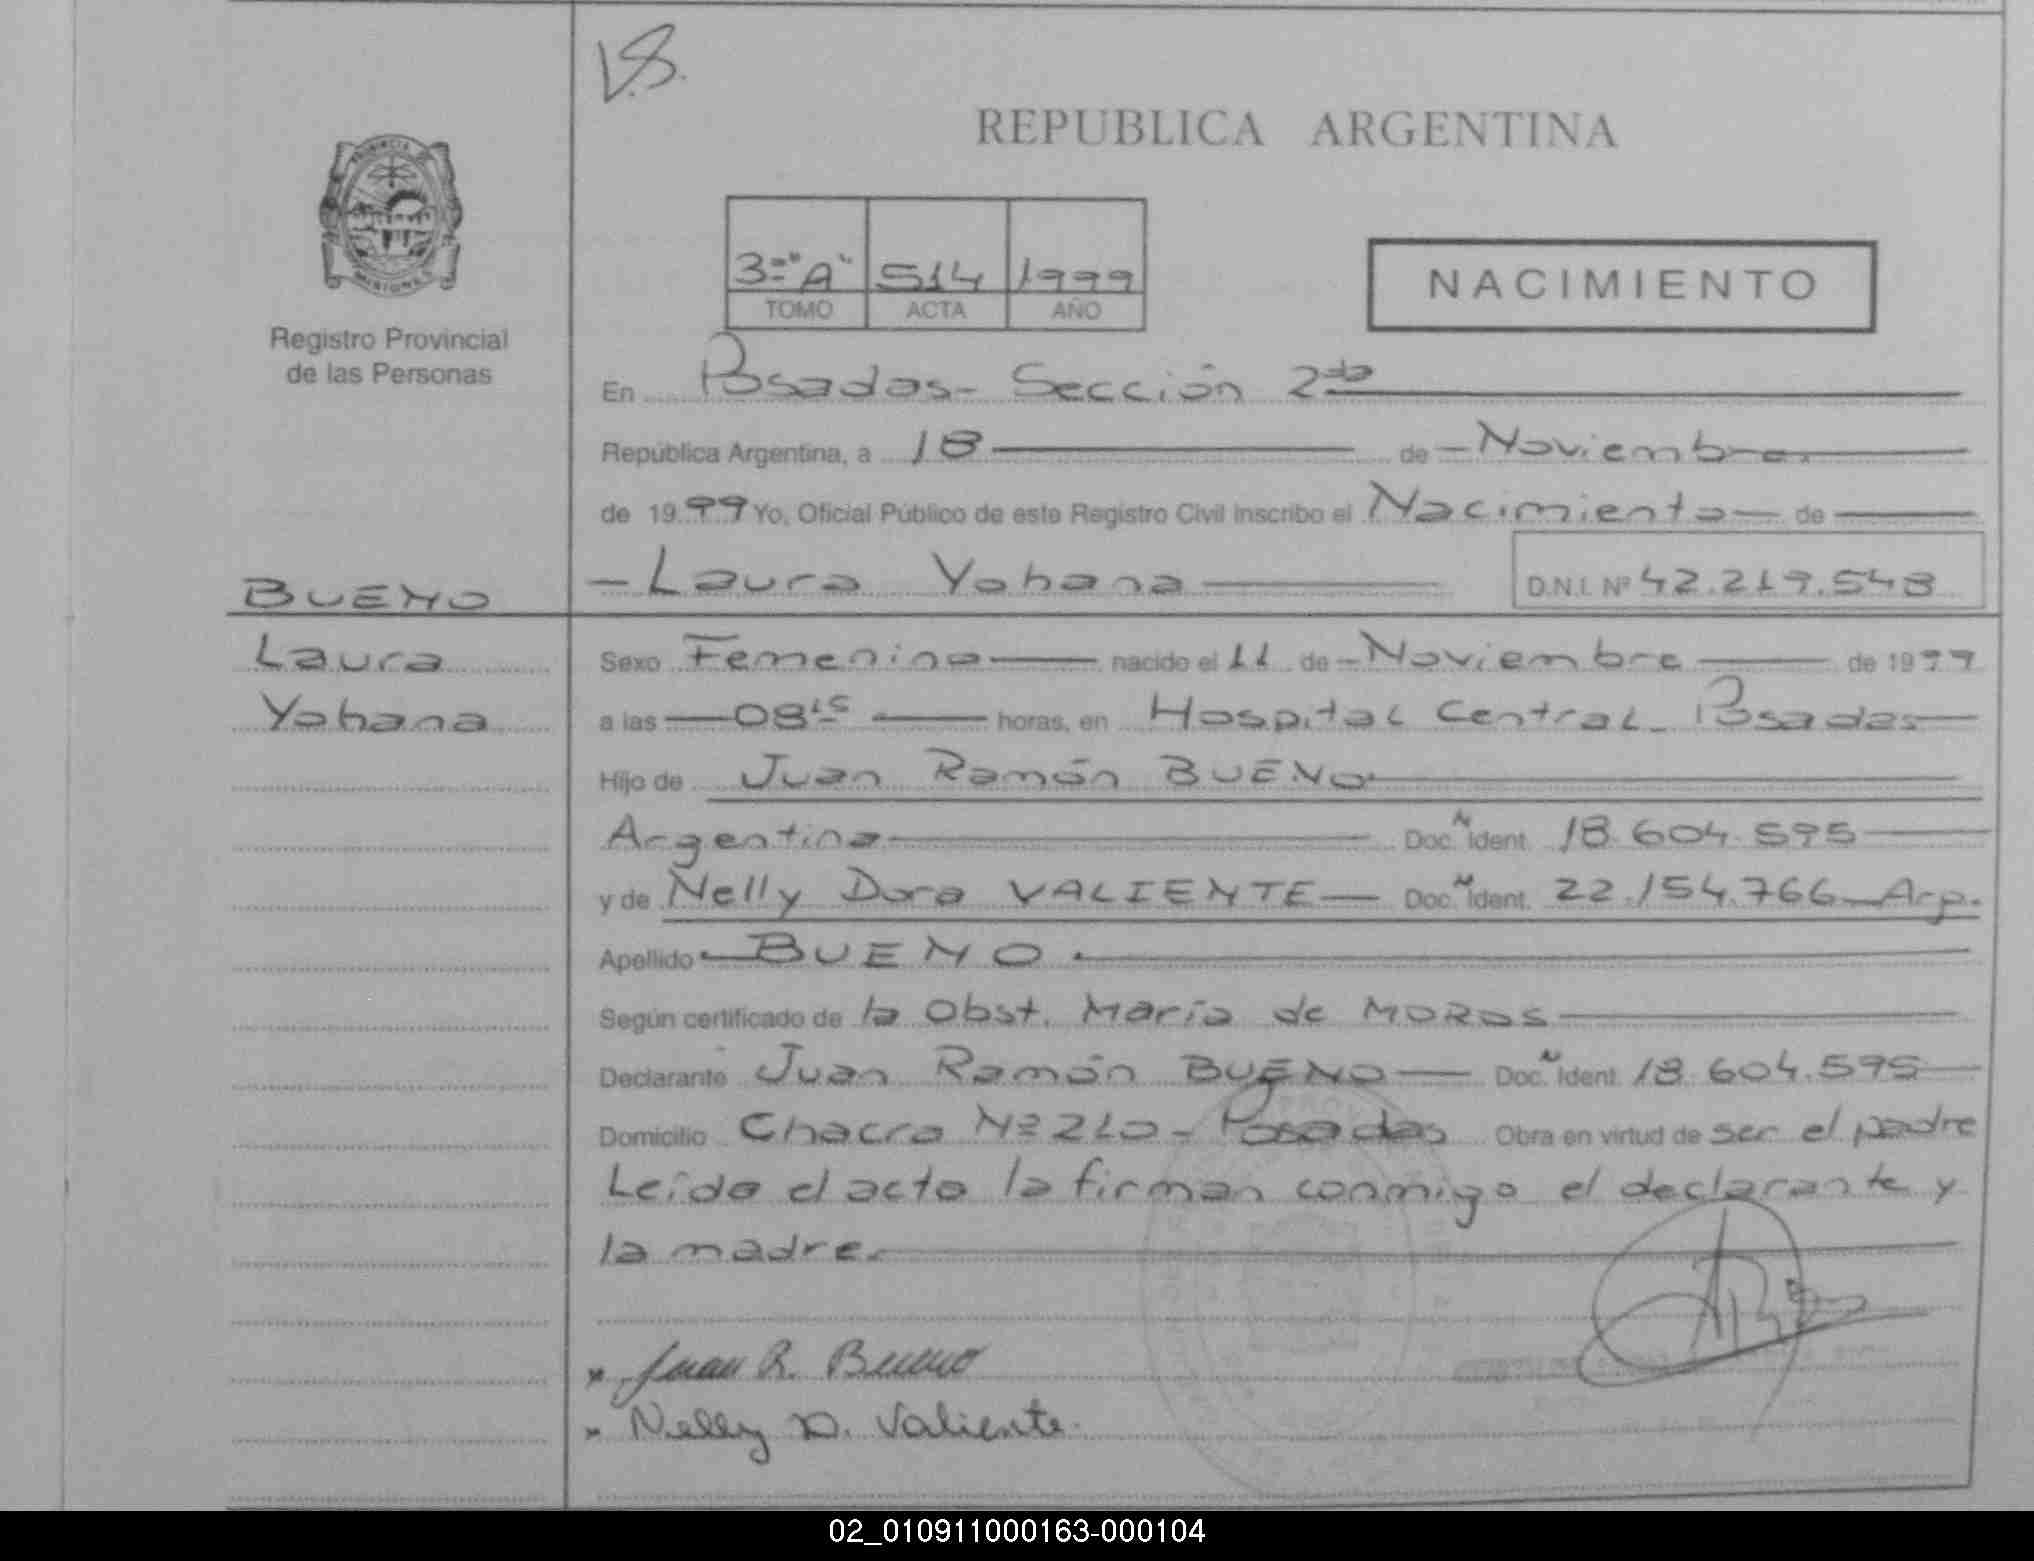 V.S.
REPUBLICA ARGENTINA
PROVINCIA DE
MISIONES
Registro Provincial
de las Personas
3º "A" 514 1999
TOMO ACTA AÑO
NACIMIENTO
En Posadas - Sección 2da
República Argentina, a 18 de Noviembre.
de 1999 Yo, Oficial Público de este Registro Civil inscribo el Nacimiento de
Laura Yohana D.N.I. Nº 42.219.548
BUENO
Laura
Yohana
Sexo Femenino nacido el 11 de Noviembre de 1999
a las 08 15 horas, en Hospital Central - Posadas
Hijo de Juan Ramón BUENO
Argentina Doc. N Ident. 18.604.595
y de Nelly Dora VALIENTE Doc. N Ident. 22.154.766 - Arg.
Apellido BUENO.
Según certificado de la Obst. María de MOROS
Declarante Juan Ramón BUENO Doc. N Ident. 18.604.595
Domicilio Chacra Nº 210 - Posadas Obra en virtud de ser el padre
Leída el acta la firman conmigo el declarante y
la madre.
Juan R. Bueno
Nelly D. Valiente.
02_010911000163-000104